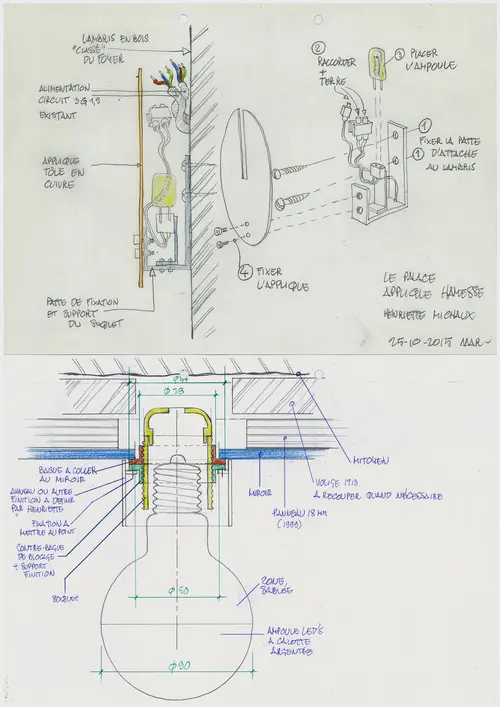 LAMBRIS EN BOIS
"CLASSÉ"
DU FOYER
ALIMENTATION
CIRCUIT 3G1,5
EXISTANT
APPLIQUE
TÔLE EN
CUIVRE
PATTE DE FIXATION
ET SUPPORT
DU SOQUET
② RACCORDER
+
TERRE
③ PLACER
L'AMPOULE
①
FIXER LA PATTE
① D'ATTACHE
AU LAMBRIS
④ FIXER
L'APPLIQUE
LE PALACE
APPLIQUE HAMESSE
HENRIETTE MICHAUX
25-10-2015 MAR
Ø 38
BAGUE A COLLER
AU MIROIR
ANNEAU OU AUTRE
FINITION A DEFINIR
PAR HENRIETTE
FIXATION A
METTRE AU POINT
CONTRE-BAGUE
DE BLOCAGE
+ SUPPORT
FINITION
SOQUET
MITOYEN
VOLIGE 17/3
A RECOUPER QUAND NÉCESSAIRE
MIROIR
PANNEAU 18 MM
(1999)
Ø 50
ZONE
SABLEE
AMPOULE LED'S
A CALOTTE
ARGENTÉE
Ø90